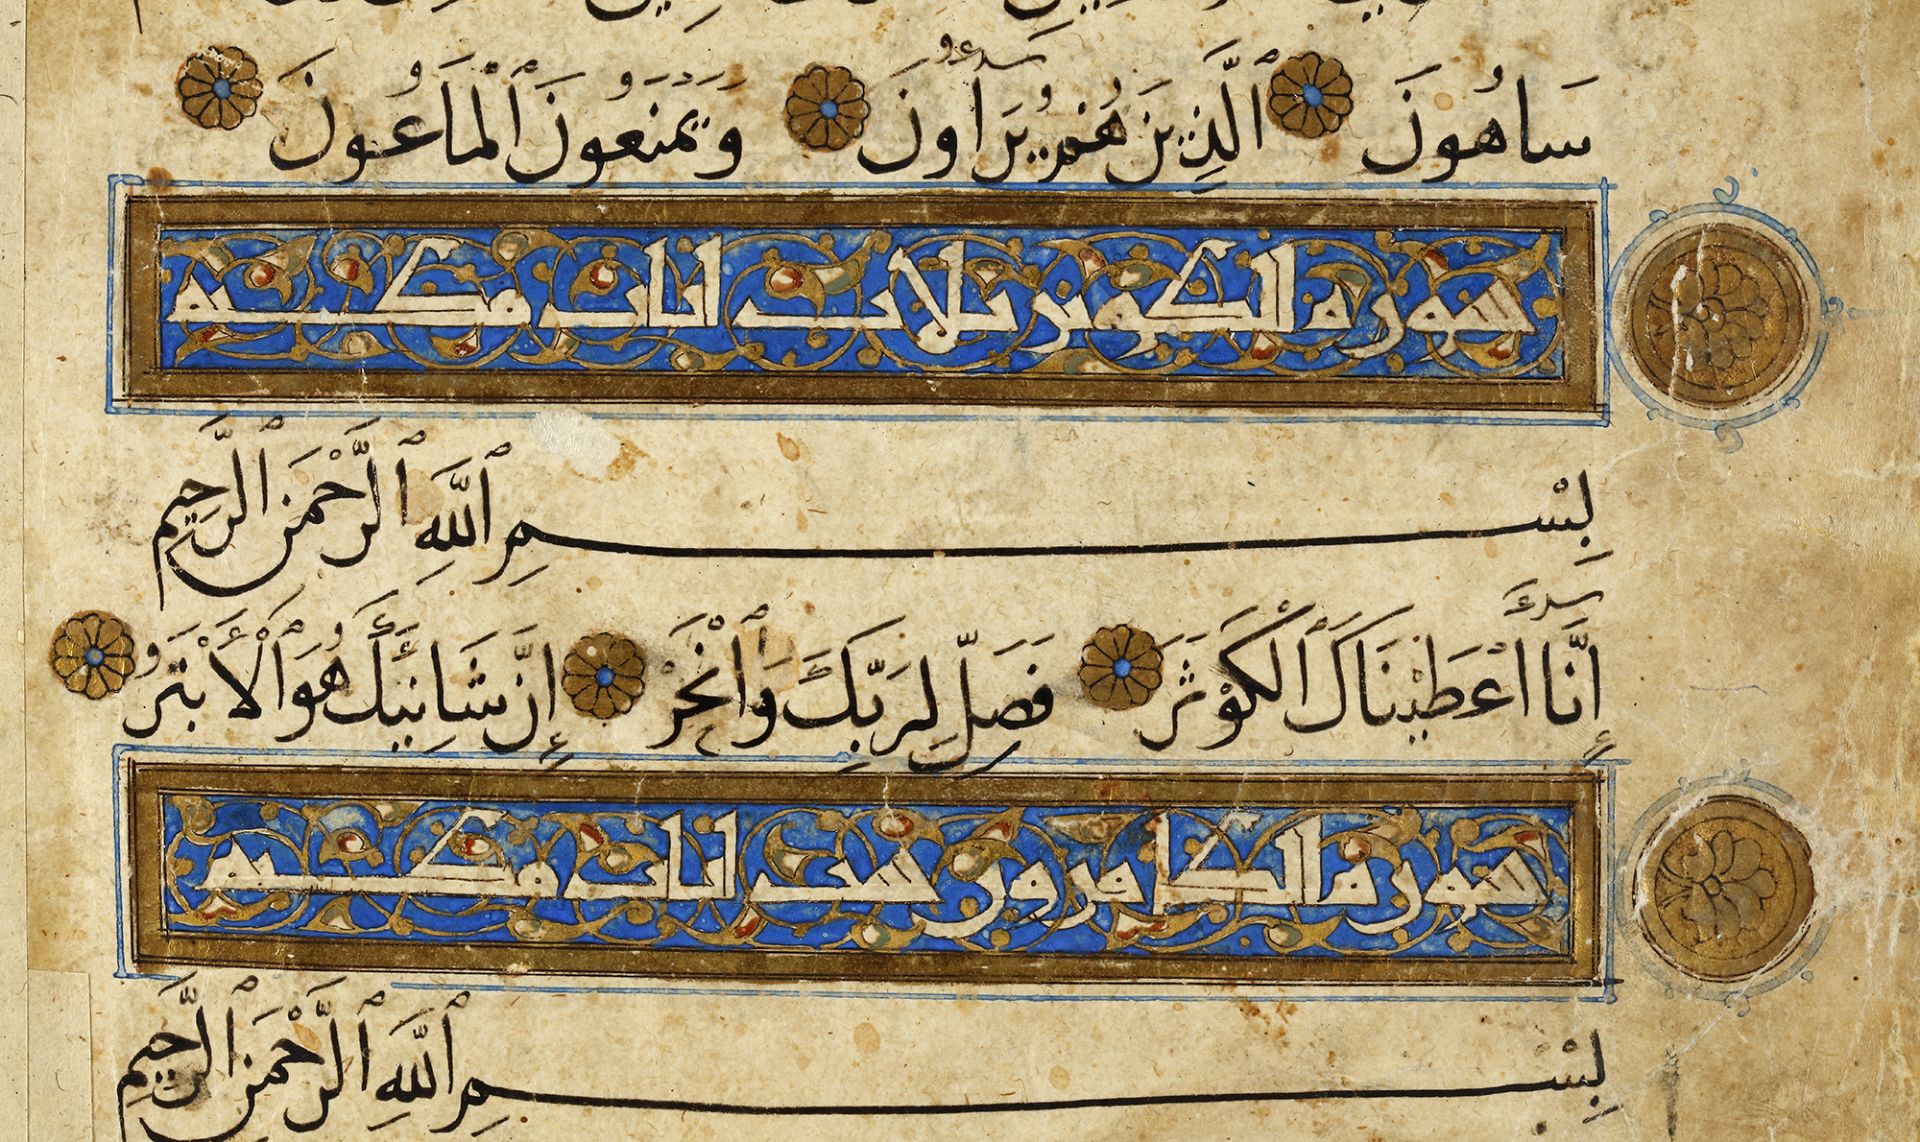 سَاهُونَ ٱلَّذِينَ هُمْ يُرَآءُونَ وَيَمْنَعُونَ ٱلْمَاعُونَ
سورة الكوثر ثلاث ايات مكية
بِسْمِ ٱللَّهِ ٱلرَّحْمَٰنِ ٱلرَّحِيمِ
إِنَّآ أَعْطَيْنَاكَ ٱلْكَوْثَرَ فَصَلِّ لِرَبِّكَ وَٱنْحَرْ إِنَّ شَانِئَكَ هُوَ ٱلْأَبْتَرُ
سورة الكافرون ست ايات مكية
بِسْمِ ٱللَّهِ ٱلرَّحْمَٰنِ ٱلرَّحِيمِ